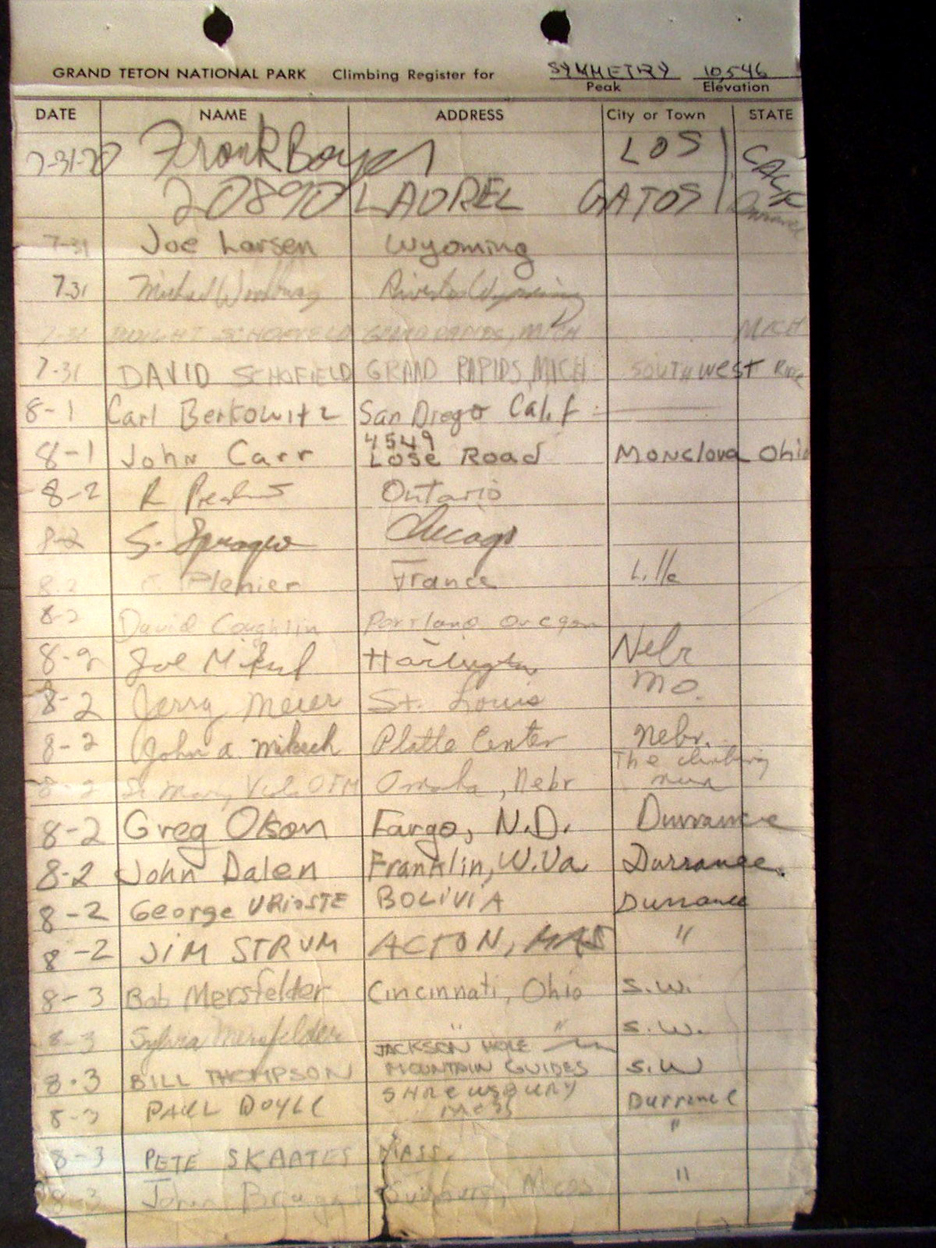 GRAND TETON NATIONAL PARK Climbing Register for SYMMETRY 10,546
Peak Elevation
DATE NAME ADDRESS City or Town STATE
7-31-70 Frank LOS CALIF
20890 LAUREL GATOS Durrance
7-31 Joe Larsen Wyoming
7-31 Michael
7-31 DWIGHT SCHOFIELD GRAND RAPIDS, MICH MICH
7-31 DAVID SCHOFIELD GRAND RAPIDS, MICH SOUTHWEST Ridge
8-1 Carl Berkowitz San Diego Calif
8-1 John Carr 4549 Lose Road Monclova Ohio
8-2 R Ontario
8-2 S. Chicago
8-2 Plenier France Lille
8-2 David Coughlin Portland Oregon
8-2 Joe Nebr
8-2 Jerry Meier St. Louis Mo.
8-2 John a. Platte Center Nebr.
8-2 Omaha, Nebr The climbing
8-2 Greg Olson Fargo, N.D. Durrance
8-2 John Dalen Franklin, W.Va Durrance
8-2 George URIOSTE BOLIVIA Durrance
8-2 JIM STRUM ACTON, MAS "
8-3 Bob Mersfelder Cincinnati, Ohio S.W.
8-3 Sylvia Mersfelder " " S.W.
8-3 BILL THOMPSON JACKSON HOLE MOUNTAIN GUIDES S.W
8-3 PAUL DOYLE SHREWSBURY MASS Durrance
8-3 PETE SKAATES MASS. "
8-3 John Mass "